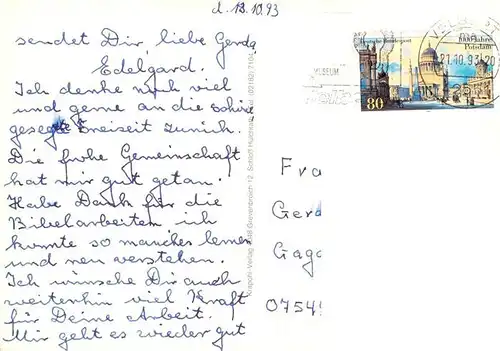 d. 13.10.93
sendet Dir, liebe Gerda
Edelgard.
Ich denke noch viel
und gerne an die schöne
Freizeit zurück.
Die frohe Gemeinschaft
hat mir gut getan.
Habe Dank für die
Bibelarbeiten ich
konnte so manches lernen
und neu verstehen.
Ich wünsche Dir auch
weiterhin viel Kraft
für Deine Arbeit.
Mir geht es wieder gut
Deutsche Bundespost
1000 Jahre
Potsdam
80
MUSEUM
21.10.93-20
Fra
Gerd
Gaga
0754